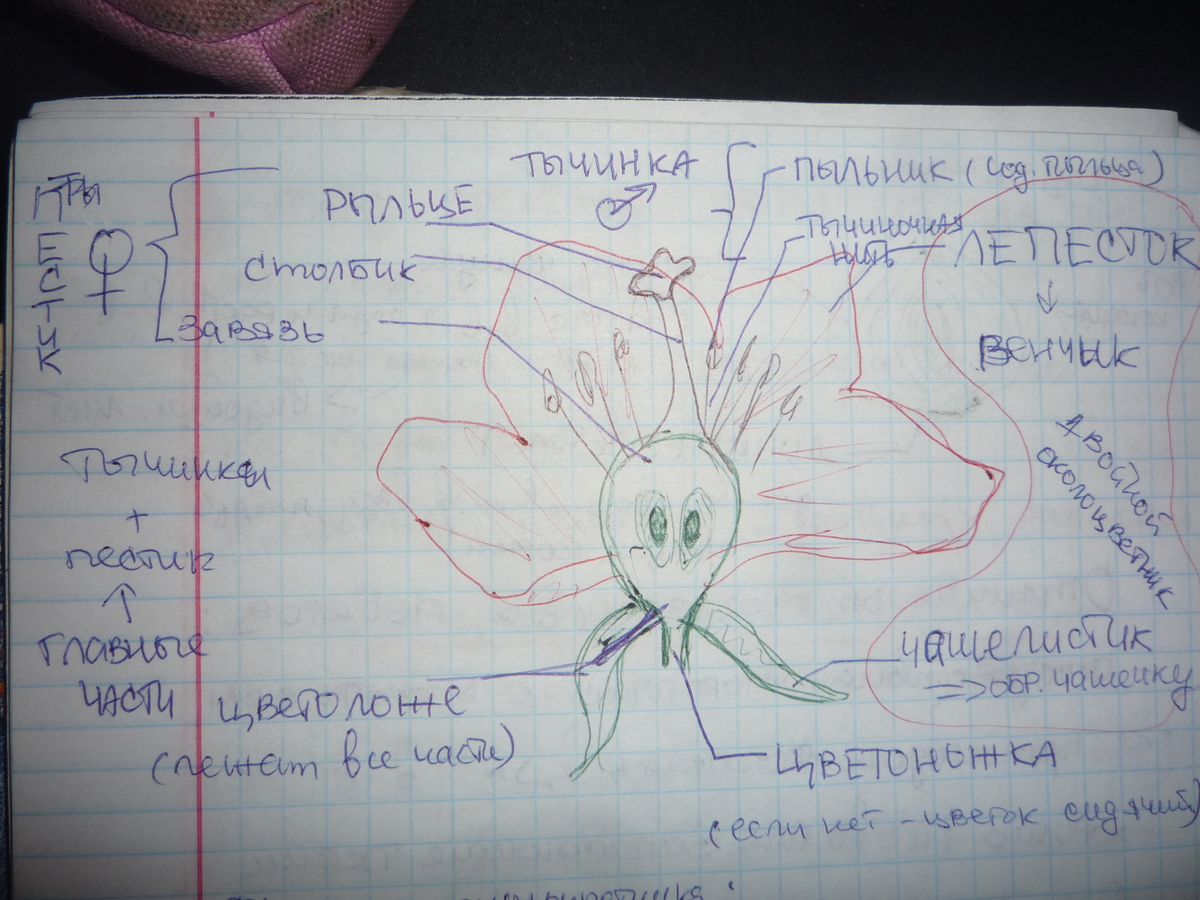 ТЫЧИНКА
ПЫЛЬНИК (сод. пыльца)
ПЕСТИК
РЫЛЬЦЕ
тычиночная
нить
ЛЕПЕСТОК
столбик
завязь
ВЕНЧЫК
двойной
околоцветник
тычинки
+
пестик
главные
части
ЧАШЕЛИСТИК
=> обр. чашечку
цветоложе
(лежат все части)
ЦВЕТОНЫЖКА
(если нет - цветок сидячий)